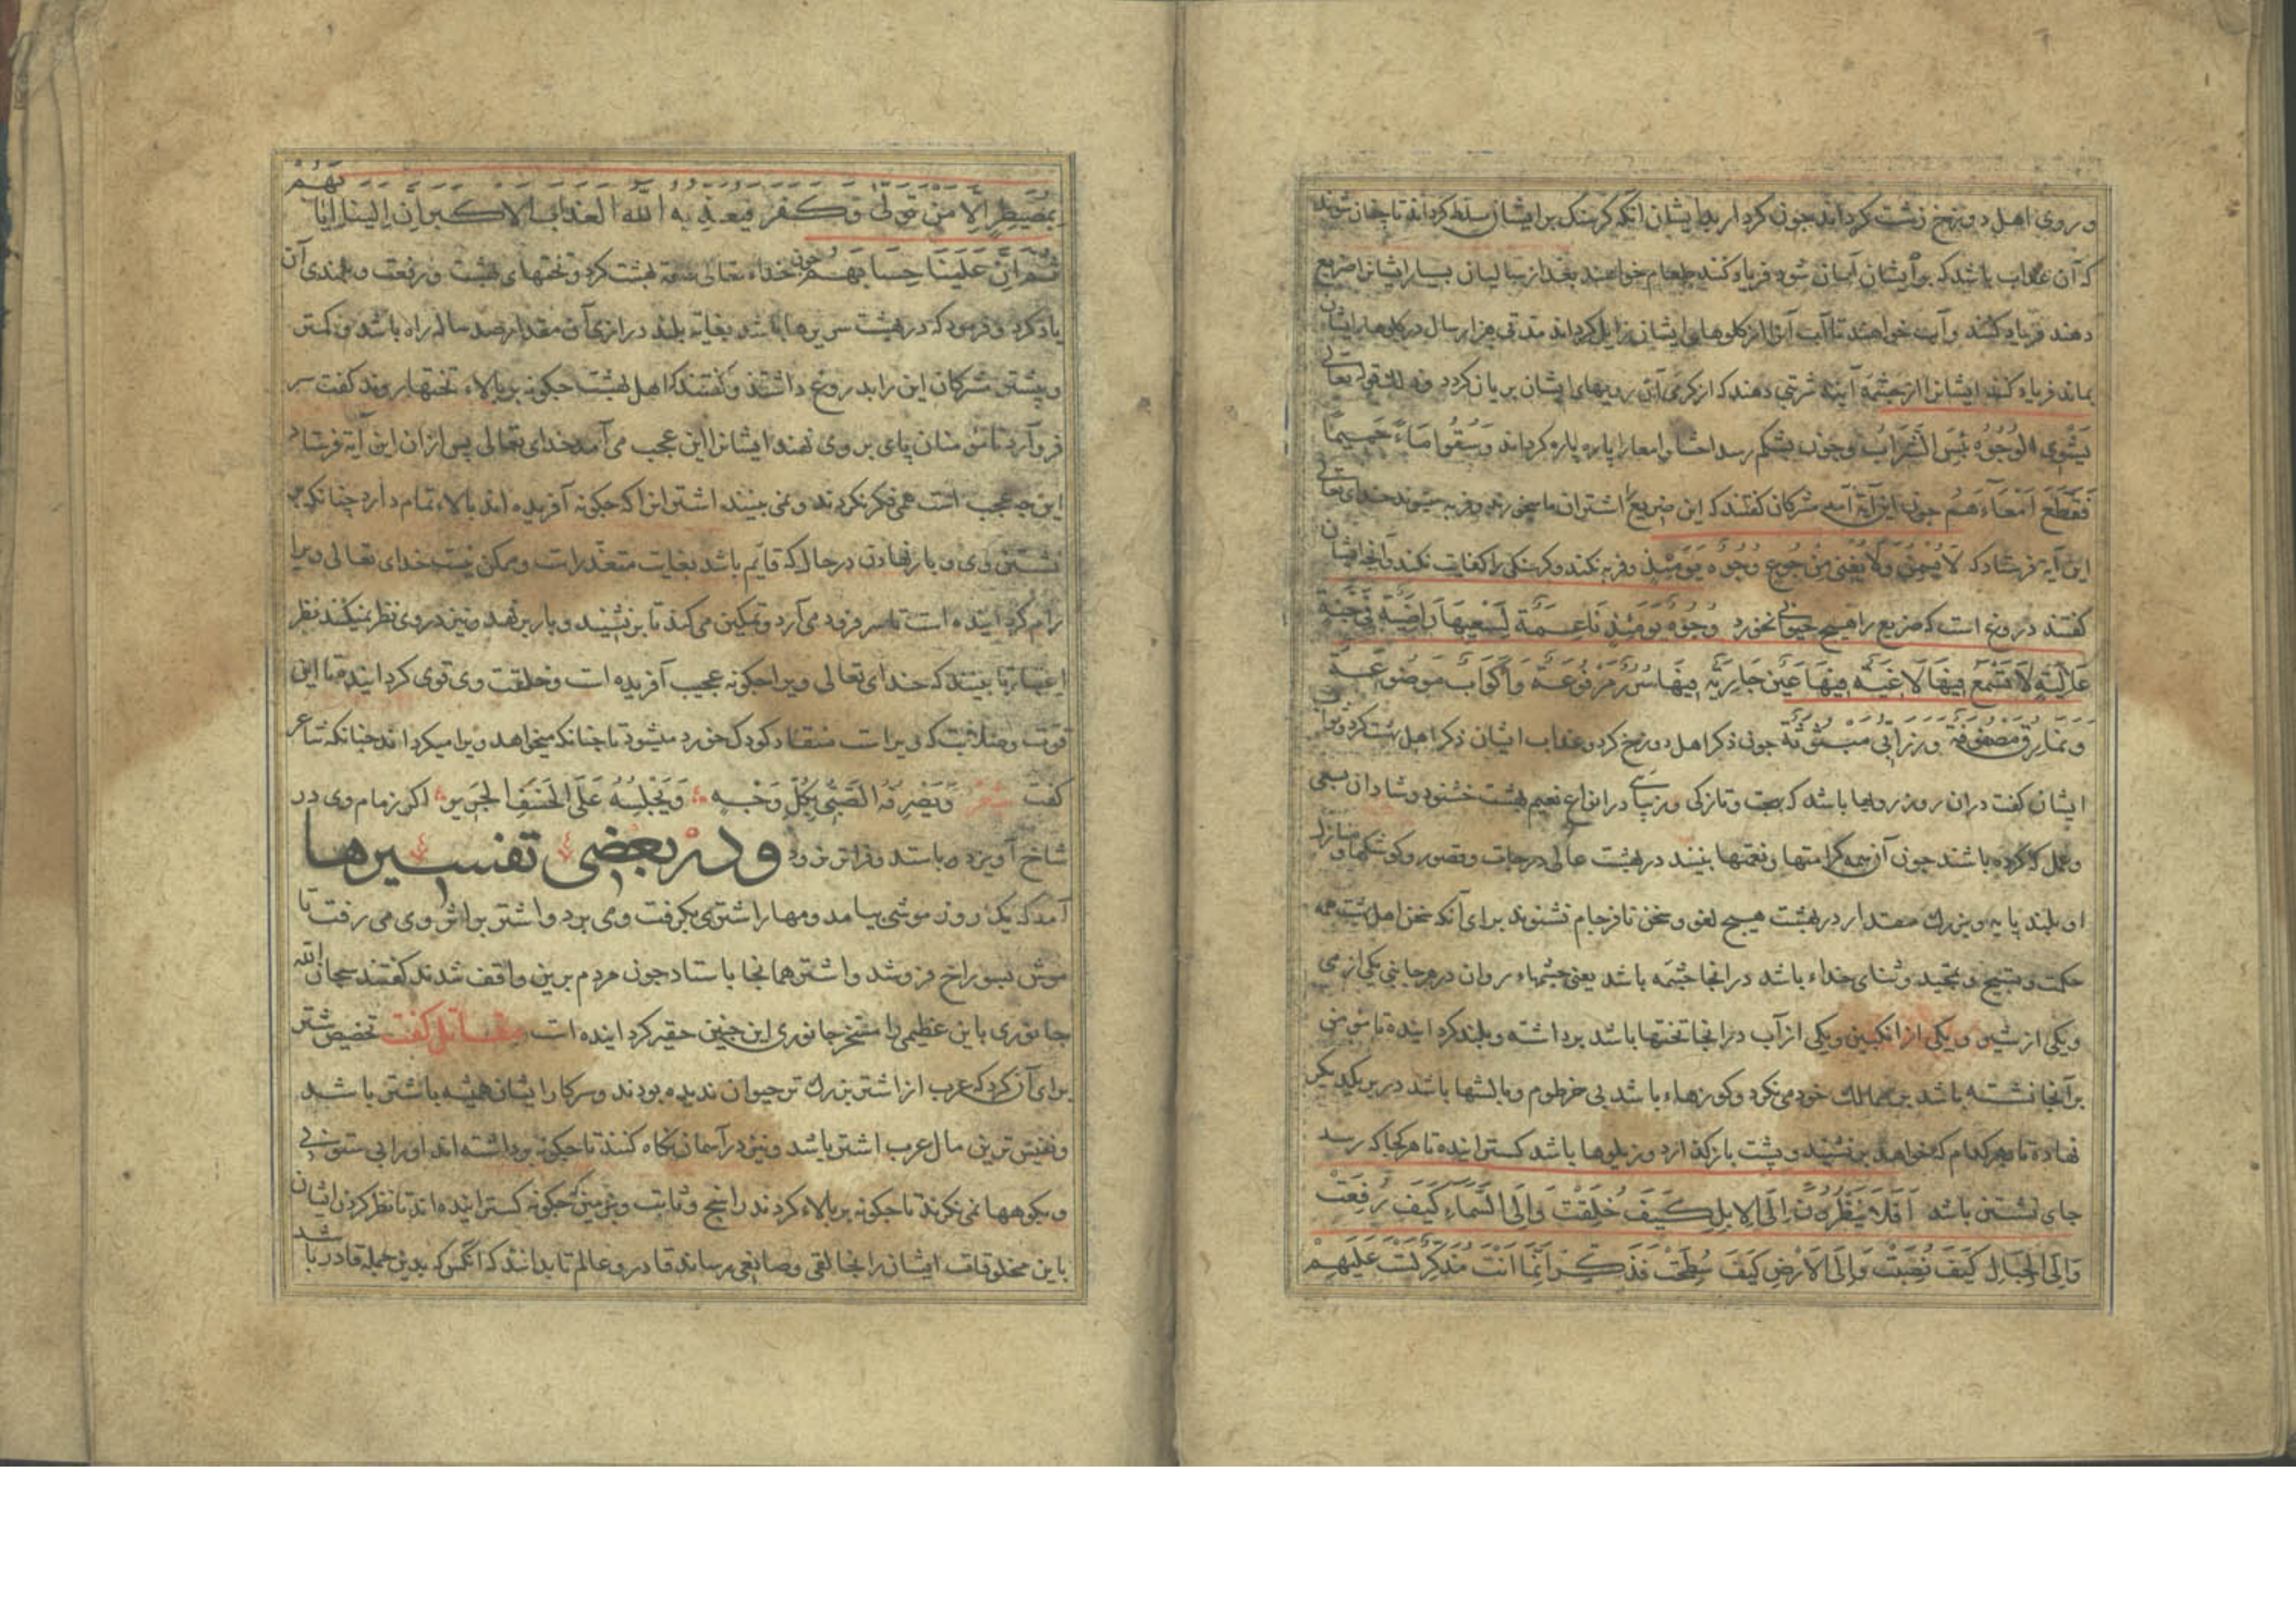 و روی اهل دوزخ زشت کرداند جون کردار بد ایشان انکه کرسنکی بر ایشان مسلط کرداند تا جنان شوند
که آن عذاب باشد که بر ایشان آسان شود فریاد کنند طعام خواهند بعد از سالیان بسیار ایشانرا ضریع
دهند فریاد کنند و آب خواهند تا آب آنرا از کلوهای ایشان زایل کرداند مدتی هزار سال در کلوهای ایشان
بماند فریاد کنند ایشانرا از جشمه آنیه شربتی دهند که از کرمی آن رویهای ایشان بریان کردد وذلک قوله تعالی
یَشْوِی الْوُجُوهَ بِئْسَ الشَّرَابُ و جون بشکم رسد احشا و امعا را پاره پاره کرداند وَسُقُوا مَاءً حَمِیمًا
فَقَطَّعَ اَمْعَآءَهُمْ جون این آیة آمد مشرکان کفتند که این ضریع اشتران ما میخورند و فربه میشوند خدای تعالی
این آیه فرستاد که لَا یُسْمِنُ وَلَا یُغْنِی مِنْ جُوعٍ وُجُوهٌ یَوْمَئِذٍ و فربه نکند و کرسنکی را کفایت نکند و آنجا ایشان
کفتند دروغ است که ضریع را هیچ حیوانی نخورد وُجُوهٌ یَوْمَئِذٍ نَاعِمَةٌ لِسَعْیِهَا رَاضِیَةٌ فِی جَنَّةٍ
عَالِیَةٍ لَا تَسْمَعُ فِیهَا لَاغِیَةً فِیهَا عَیْنٌ جَارِیَةٌ فِیهَا سُرُرٌ مَرْفُوعَةٌ وَاَکْوَابٌ مَوْضُوعَةٌ
وَنَمَارِقُ مَصْفُوفَةٌ وَزَرَابِیُّ مَبْثُوثَةٌ جون ذکر اهل دوزخ کرد و عذاب ایشان ذکر اهل بهشت کرد و ثواب
ایشان کفت دران روز رویها باشد که بهجت و تازکی و زیبای در انواع نعیم بهشت خشنود و شادان بسعی
و عمل که کرده باشند جون آن همه کرامتها و نعمتها بینند در بهشت عالی درجات و قصور و کوشکها و منازل
او بلند پایه و بزرک مقدار در بهشت هیچ لغو و سخن نافرجام نشنوند برای آنکه سخن اهل بهشت همه
حکمت و تسبیح و تمجید و ثنای خداء باشد درانجا جشمه باشد یعنی جشمهاء روان در هر جانبی یکی از می
و یکی از شیر و یکی از انکبین و یکی از آب درانجا تختها باشد برداشته و بلند کردانیده تا مؤمن
بر آنجا نشسته باشد بر ممالک خود می نکرد و کوزهاء باشد بی خرطوم و بالشها باشد در بر یکدیکر
نهاده تا بهر کدام که خواهد بر نشیند و پشت باز کذارد و زیلوها باشد کسترانیده تا هر کجا که رسد
جای نشستن باشد اَفَلَا یَنْظُرُونَ اِلَی الْاِبِلِ کَیْفَ خُلِقَتْ وَاِلَی السَّمَاءِ کَیْفَ رُفِعَتْ
وَاِلَی الْجِبَالِ کَیْفَ نُصِبَتْ وَاِلَی الْاَرْضِ کَیْفَ سُطِحَتْ فَذَکِّرْ اِنَّمَا اَنْتَ مُذَکِّرٌ لَسْتَ عَلَیْهِمْ
بِمُصَیْطِرٍ اِلَّا مَنْ تَوَلَّی وَکَفَرَ فَیُعَذِّبُهُ اللهُ الْعَذَابَ الْاَکْبَرَ اِنَّ اِلَیْنَا اِیَابَهُمْ
ثُمَّ اِنَّ عَلَیْنَا حِسَابَهُمْ جون خداء تعالی صفت بهشت کرد و تختهای بهشت و رفعت و بلندی آن
یاد کرد و فرمود که در بهشت سریرها باشد بغایة بلند درازی آن مقدار صد ساله راه باشد و کمتر
و بیشتر مشرکان این را بدروغ داشتند و کفتند که اهل بهشت جکونه بر بالاء تختها روند کفت سر
فرو آرد تا مؤمنان پای بر وی نهند ایشانرا این عجب می آمد خدای تعالی پس ازان این آیة فرستاد
این جه عجب است همی فکر نکردند و نمی بینند اشترانرا که جکونه آفریده اند بالاء تمام دارد چنانکه بر
نشستن وی و بار نهادن در حال که قایم باشد بغایت متعذر است و ممکن نیست خدای تعالی ویرا
رام کردانیده است تا سر فرود می آرد و تمکین می کند تا بر نشیند و بار بر نهد و نیز در وی نظر نمیکنند نظر
اعتبار تا بینند که خدای تعالی ویرا جکونه عجیب آفریده است و خلقت وی قوی کردانیده با این
قوت و صلابت که ویراست منقاد کودک خورد میشود تا جنانکه میخواهد ویرا میکرداند جنانکه شاعر
کفت شعر وَیَصْرِفُهُ الصَّبِیُّ بِکُلِّ وَجْهٍ وَیَحْبِسُهُ عَلَی الْخَسَفِ الْجَرِیرُ اکر زمام وی در
شاخ آویزد و در بعضی تفسیرها
آمد که یک روز موشی بیامد و مهار اشتری بکرفت و می برد و اشتر بر اثر وی می رفت تا
موش بسوراخ فرو شد و اشتر همانجا باستاد جون مردم برین واقف شدند کفتند سبحان الله
جانوری باین عظیمی را مسخر جانوری این جنین حقیر کردانیده است مقاتل کفت تخصیص شتر
برای آن کرد که عرب از اشتر بزرک تر حیوان ندیده بودند و سر کار ایشان همیشه باشتر باشد
و نفیس ترین مال عرب اشتر باشد و نیز در آسمان نکاه کنند تا جکونه برداشته اند او را بی ستونی
و بکوهها نمی نکرند تا جکونه بر بالاء کردند راسخ و ثابت و بزمین جکونه کسترانیده اند تا نظر کردن ایشان
باین مخلوقات ایشان را بخالقی و صانعی رساند قادر و عالم تا بدانند که آنکس که بدین جمله قادر باشد